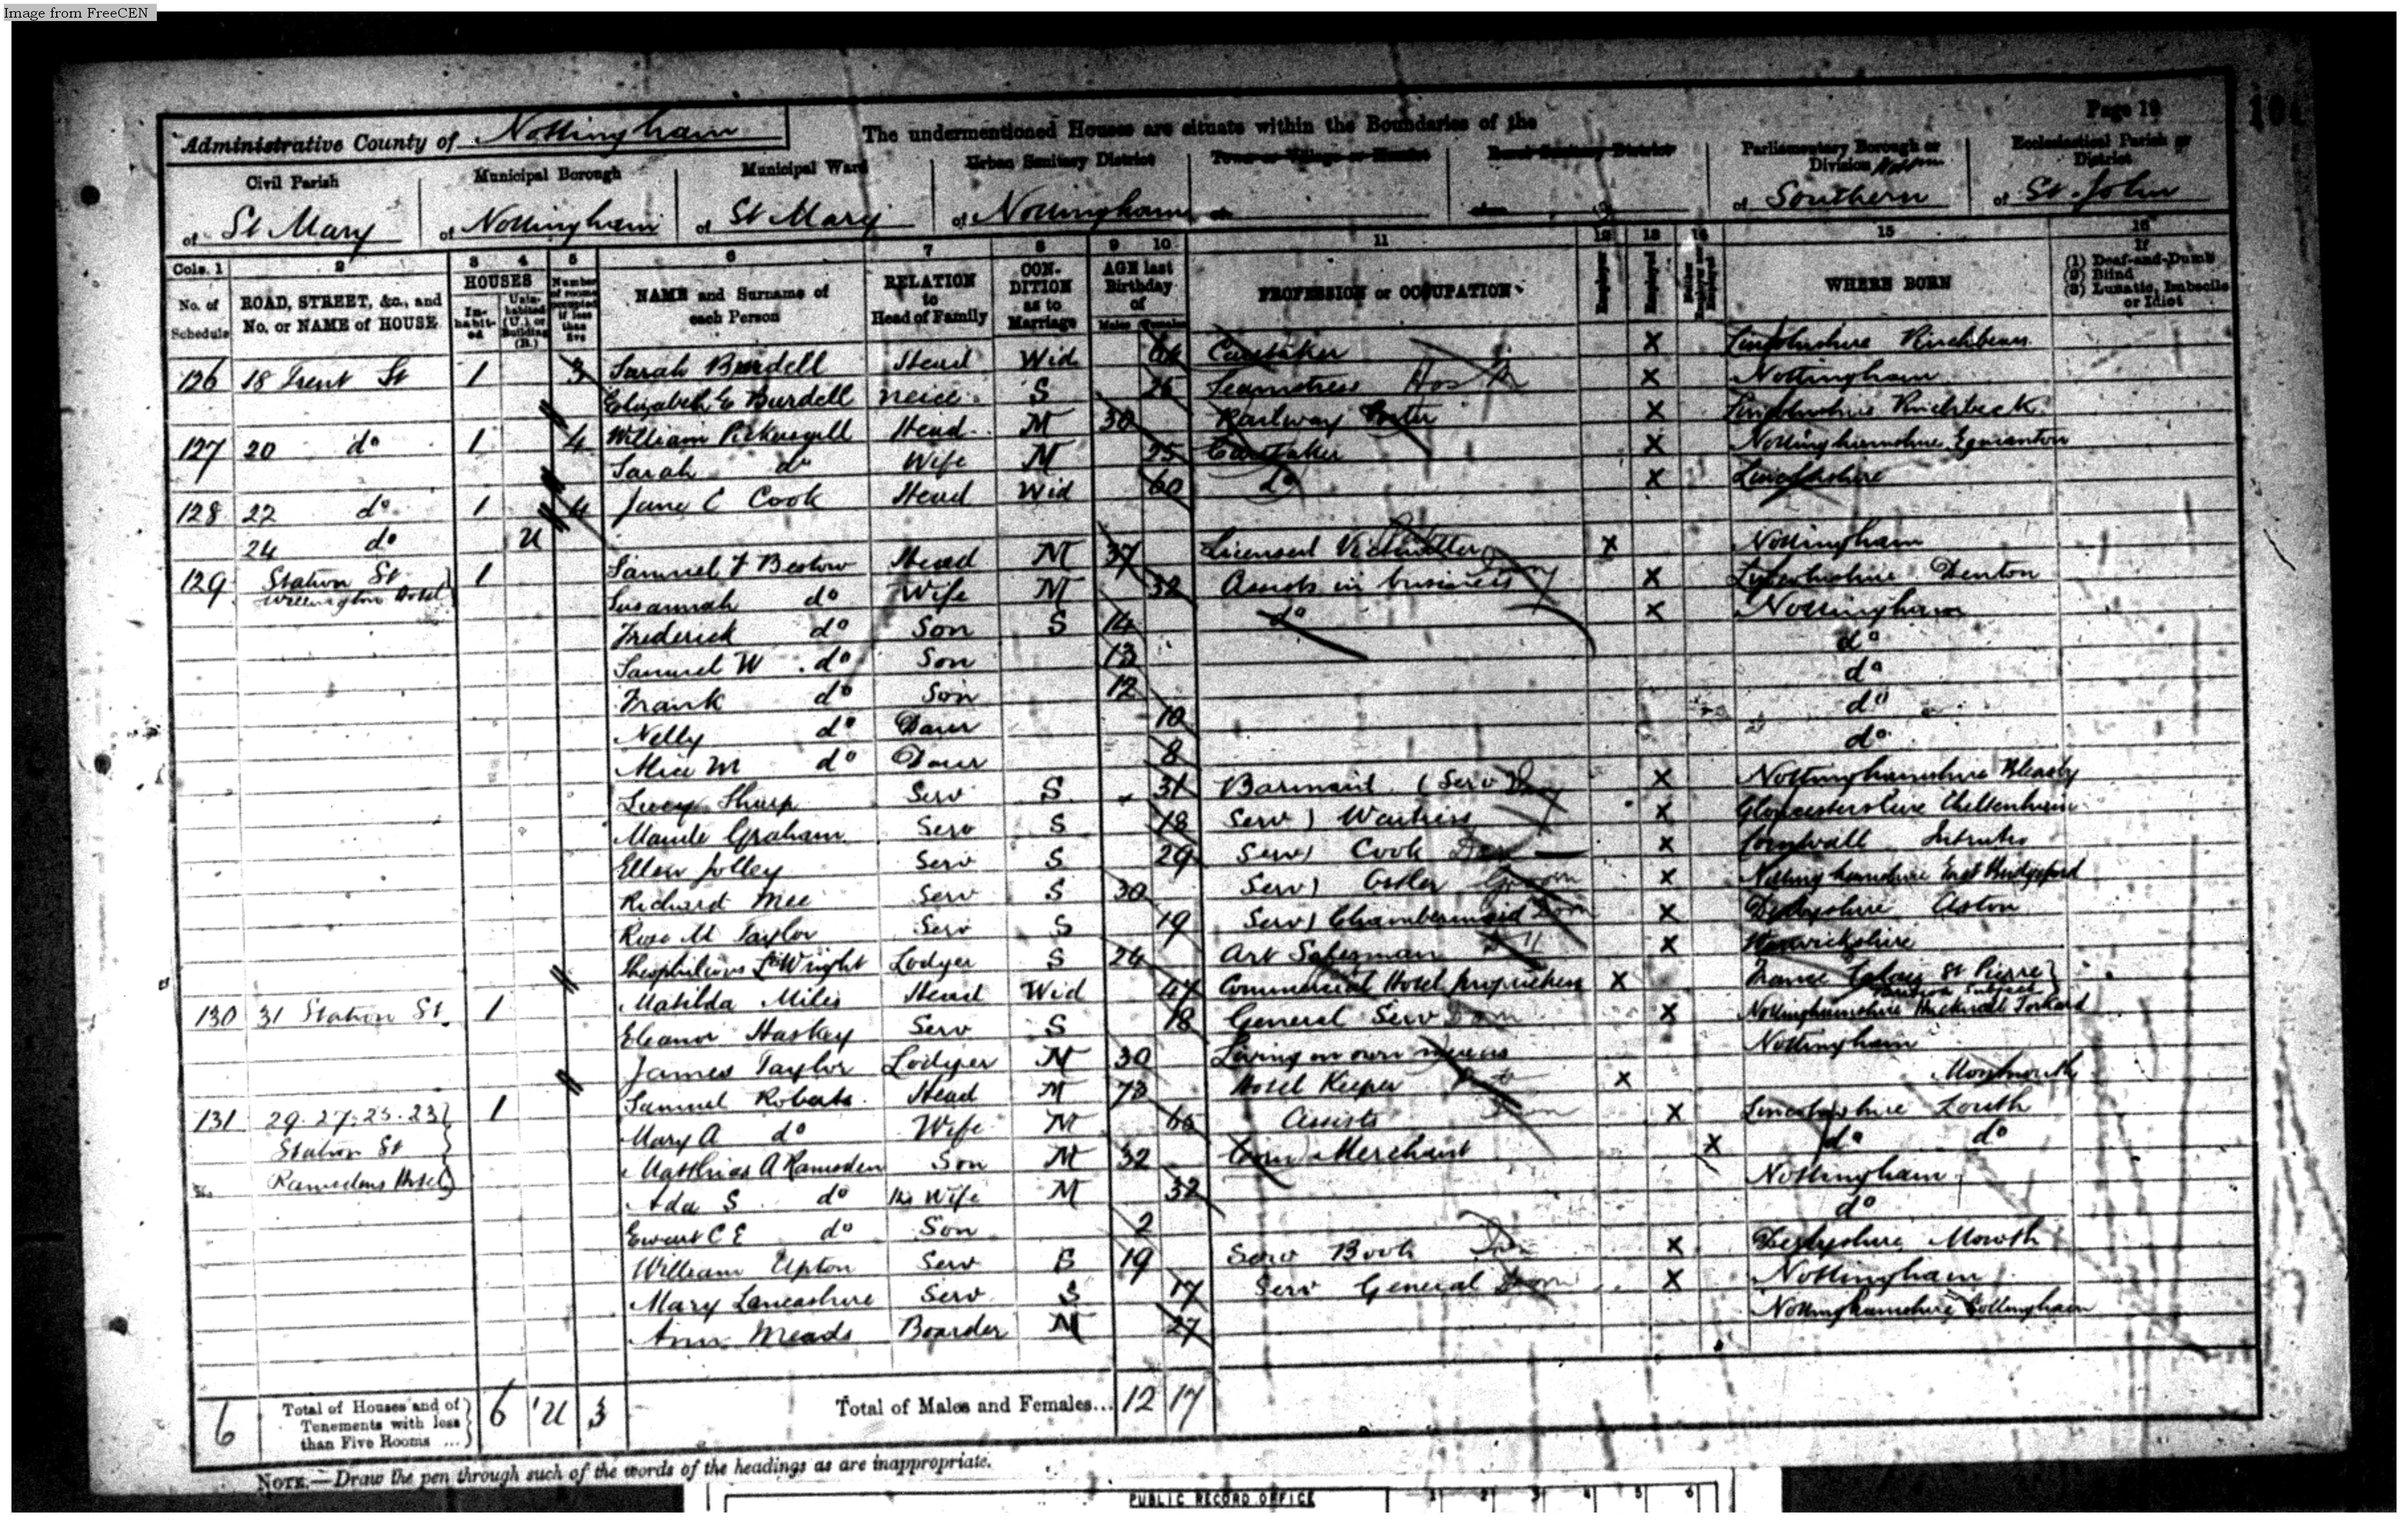 Image from FreeCEN
Page 19
Administrative County of Nottingham
The undermentioned Houses are situate within the Boundaries of the
Civil Parish of St Mary
Municipal Borough of Nottingham
Municipal Ward of St Mary
Urban Sanitary District of Nottingham
Town or Village or Hamlet of
Rural Sanitary District of
Parliamentary Borough or Division of Southern
Ecclesiastical Parish or District of St John
Cols. 1 2 3 4 5 6 7 8 9 10 11 12 13 14 15 16
No. of Schedule
ROAD, STREET, &c., and No. or NAME of HOUSE
HOUSES
Inhabited
Uninhabited (U.) or Building (B.)
Number of rooms occupied if less than five
NAME and Surname of each Person
RELATION to Head of Family
CONDITION as to Marriage
AGE last Birthday of
Males Females
PROFESSION or OCCUPATION
Employer
Employed
Neither Employer nor Employed
WHERE BORN
If (1) Deaf-and-Dumb (2) Blind (3) Lunatic, Imbecile or Idiot
126 18 Trent St 1 3 Sarah Burdell Head Wid Caretaker X Lincolnshire
Elizabeth E Burdell neice S 25 Seamstress X Nottingham
127 20 do 1 4 William Pickersgill Head M 30 Railway Porter X Lincolnshire Pinchbeck
Sarah do Wife M 25 Caretaker X Nottinghamshire Egmanton
128 22 do 1 4 Jane C Cook Head Wid 60 do X Lincolnshire
24 do U
129 Station St Wellington Hotel 1 Samuel F Bestow Head M 37 Licensed Victualler X Nottingham
Susannah do Wife M 32 Assists in business X Lincolnshire Denton
Frederick do Son S 14 do X Nottingham
Samuel W do Son 13 do
Frank do Son 12 do
Nelly do Daur 10 do
Alice M do Daur 8 do
Lucy Sharp Serv S 31 Barmaid (Serv) X Nottinghamshire Bleasby
Maude Graham Serv S 18 Serv) Waitress X Gloucestershire Cheltenham
Ellen Jolley Serv S 29 Serv) Cook Dom X Cornwall
Richard Mee Serv S 30 Serv) Ostler Groom X Nottinghamshire East Bridgeford
Rose M Taylor Serv S 19 Serv) Chambermaid Dom X Derbyshire Aston
Wright Lodger S 24 Art Salesman X Warwickshire
130 31 Station St. 1 Matilda Miles Head Wid 47 Commercial Hotel X France Calais St Pierre
Eleanor Haskey Serv S 18 General Serv Dom X Nottinghamshire Hucknall Torkard
James Taylor Lodger M 30 Living on own means Nottingham
131 29. 27. 25. 23 Station St Ramsdens Hotel 1 Samuel Roberts Head M 73 Hotel Keeper X Monmouth
Mary A do Wife M Assists X Lincolnshire Louth
Matthias A Ramsden Son M 32 Corn Merchant X do do
Ada S do his Wife M 32 Nottingham
Ewart C E do Son 2 do
William Upton Serv S 19 Serv Boots X Derbyshire
Mary Lancashire Serv S 17 Serv General Dom X Nottingham
Ann Meads Boarder M 27 Nottinghamshire Collingham
6 Total of Houses and of Tenements with less than Five Rooms ... 6 1U 3 Total of Males and Females... 12 17
NOTE.—Draw the pen through such of the words of the headings as are inappropriate.
PUBLIC RECORD OFFICE
1 2 3 4 5 6